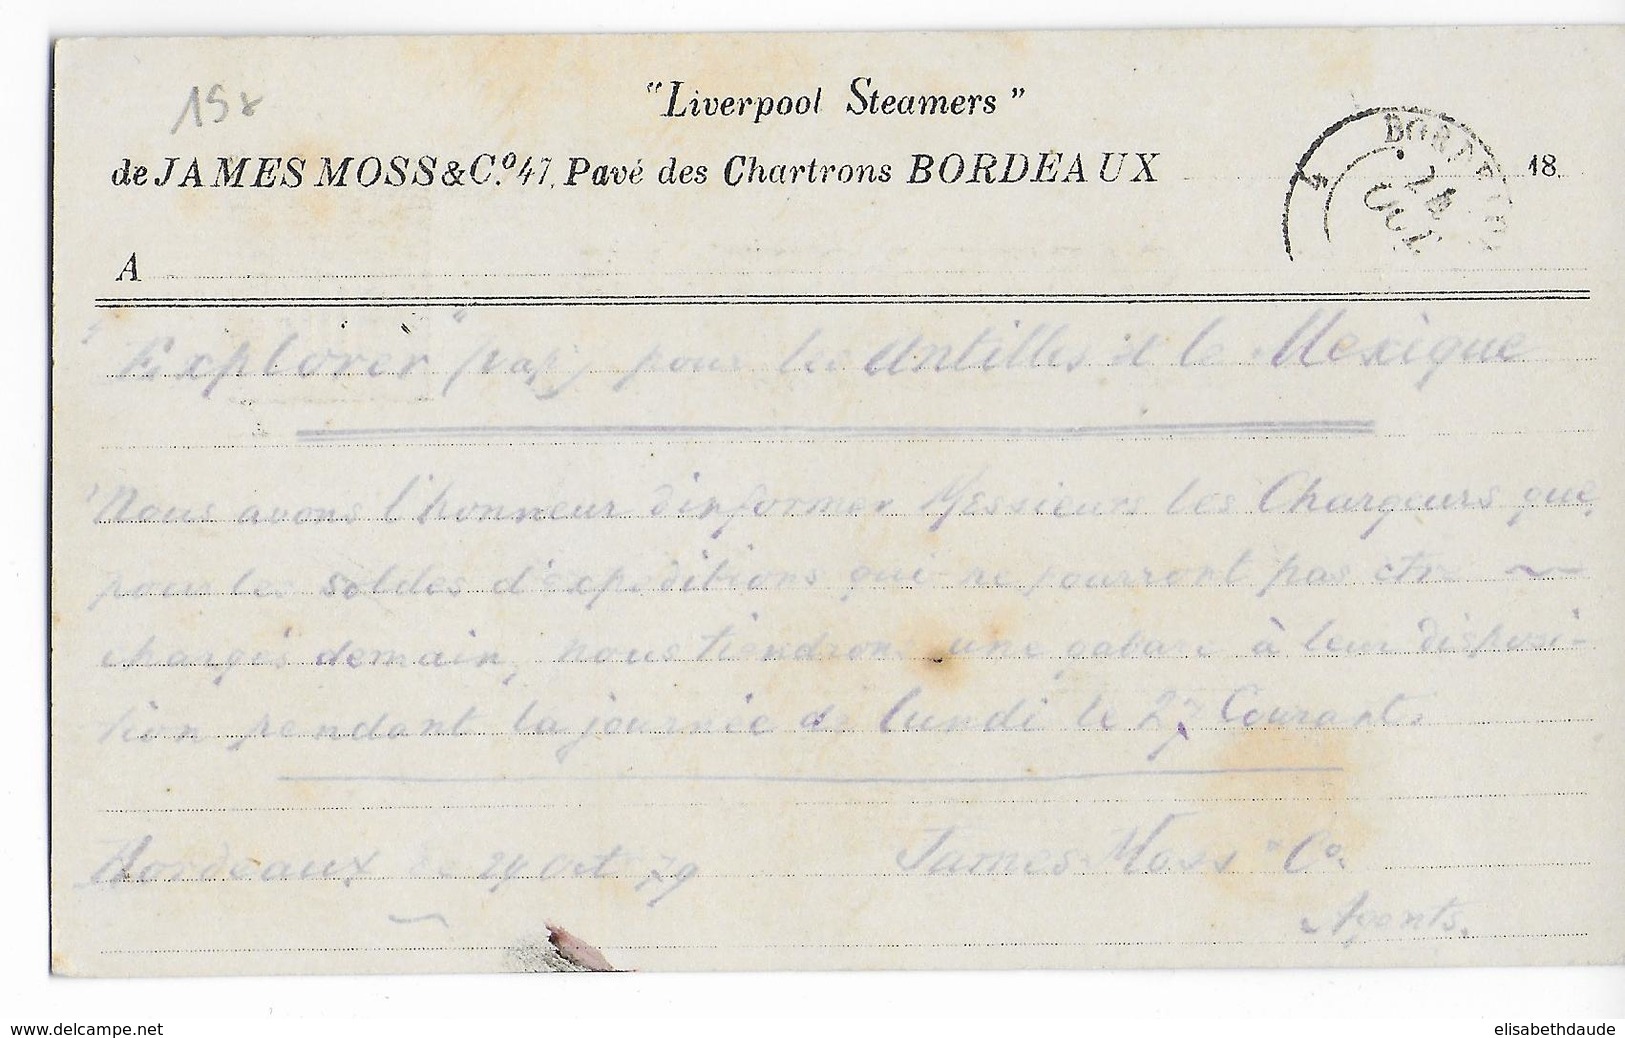 15x
"Liverpool Steamers"
de JAMES MOSS & C.º 47, Pavé des Chartrons BORDEAUX 18
BORDEAUX
4
24
OCT
A
"Explorer" (vap) pour les Antilles & le Mexique
Nous avons l'honneur d'informer Messieurs les Chargeurs que
pour les soldes d'expeditions qui ne pourront pas etre
chargés demain, nous tiendrons une gabare à leur disposi-
tion pendant la journée de lundi le 27 Courant.
Bordeaux le 24 Oct 79 James Moss & Co.
Agents.
www.delcampe.net
elisabethdaude